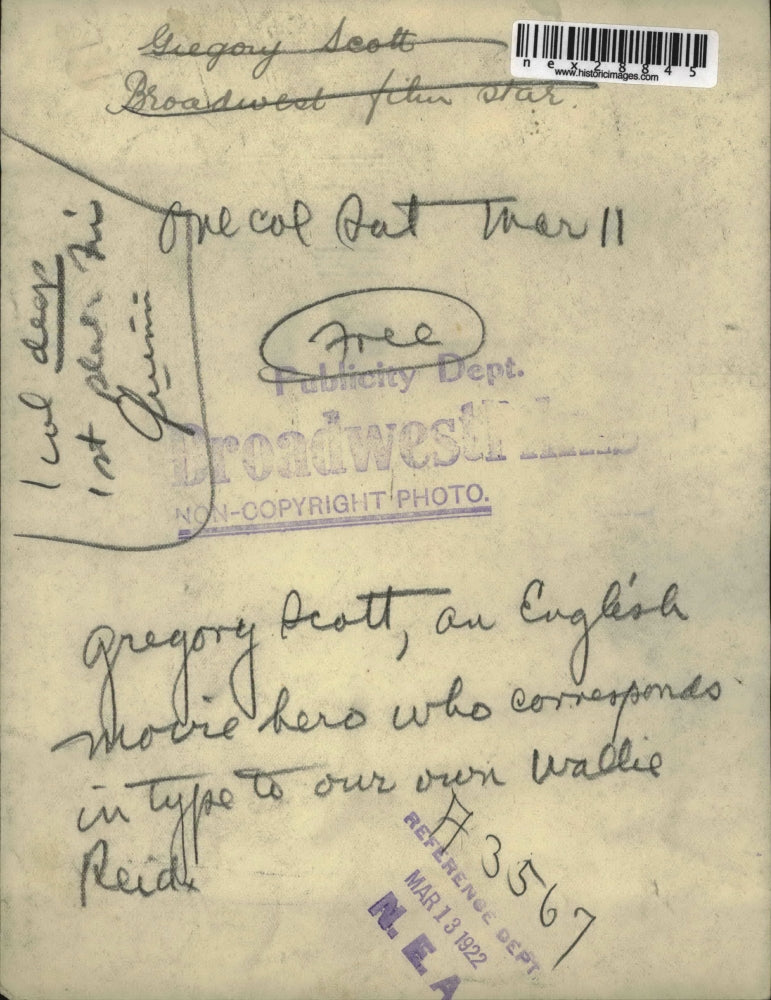 Gregory Scott
Broadwest film star.
nex28845
www.historicimages.com
One col Sat Mar 11
1 col deep
1st
Free
Publicity Dept.
Broadwest Films
NON-COPYRIGHT PHOTO.
Gregory Scott, an English
movie hero who corresponds
in type to our own Wallie
Reid.
A 3567
REFERENCE DEPT.
MAR 13 1922
N. E. A